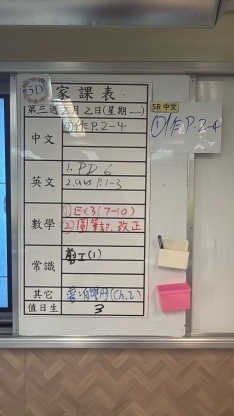 5D
家課表
第三週2月2日(星期一)
中文
①作E P.2-4
英文
1. PD 6
2. P.1-3
數學
①Ex3(7-10)
② 筆記, 改正
常識
剪工(1)
其它
(Ch.2)
值日生
3
5R 中文
①作E P.2-4